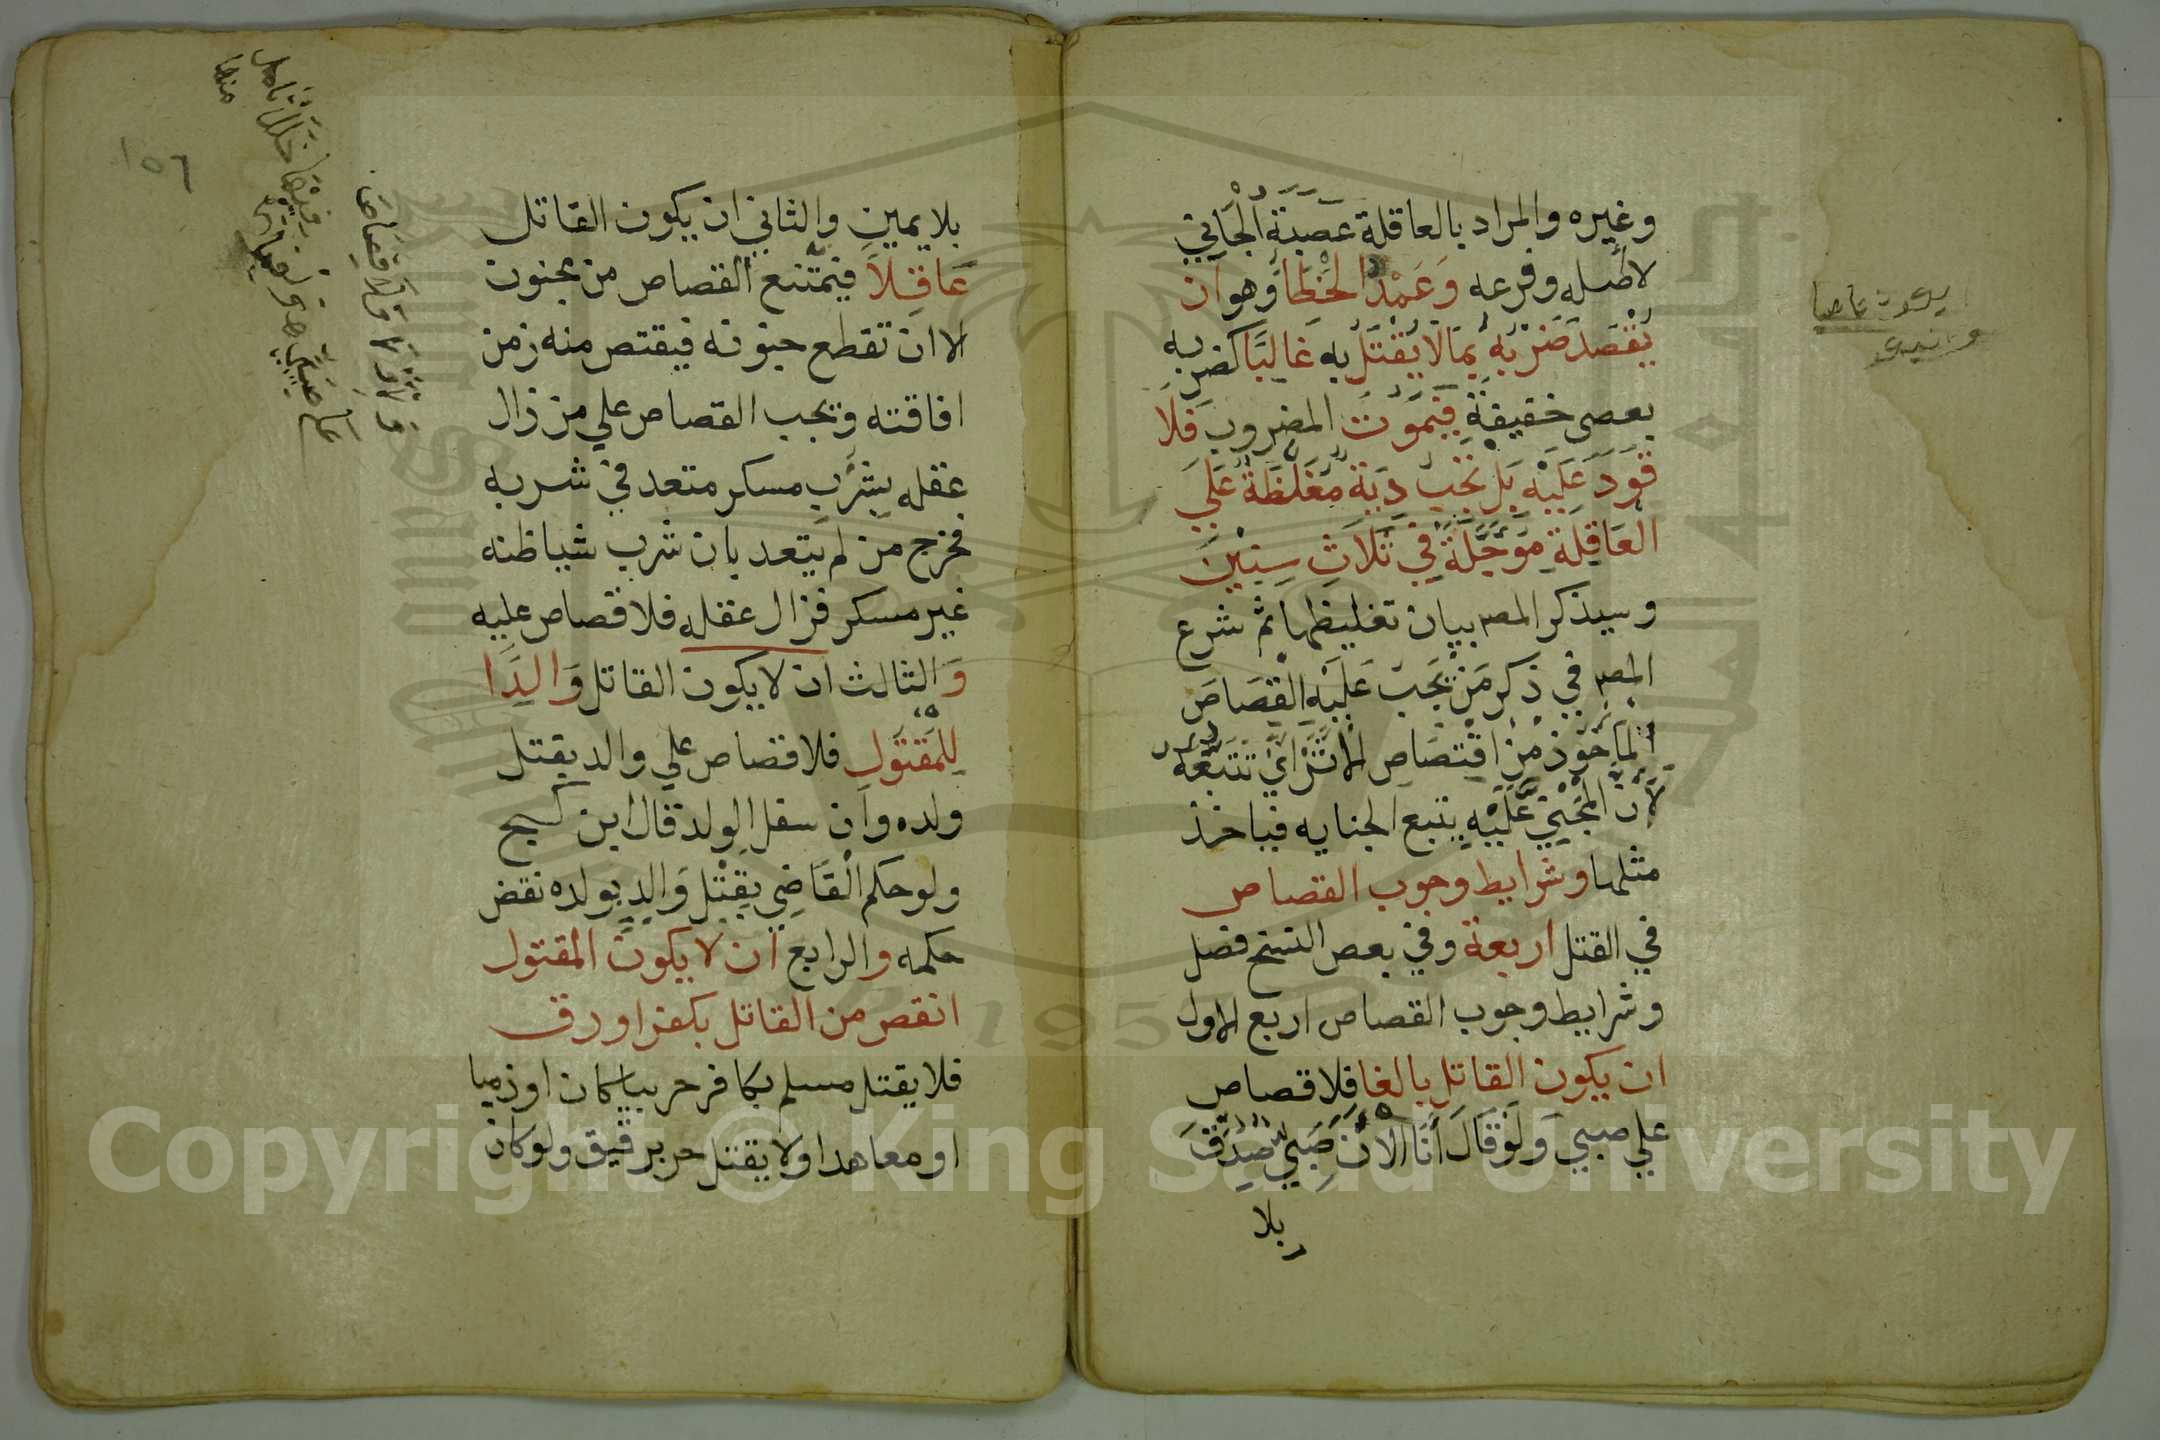 وغيره والمراد بالعاقلة عَصَبَةُ الْجَانِي
لا أصله وفرعه وَعَمْدُ الخطا وهو ان
يَقْصدَ ضَرْبَهُ بِمَا لَا يَقْتُلُ بِهِ غَالِبًا كضربه
بعصى خفيفةٍ فَيَمُوتُ المضروب فَلَا
قَوَدَ عَلَيْهِ بَلْ تَجِبُ دِيَةٌ مُغَلَّظَةٌ عَلَي
العَاقِلَةِ مُؤَجَّلَةٌ فِي ثَلَاثِ سِنِيْنَ
وسيذكر المصـ بيان تغليظها ثم شرع
المصـ في ذكر مَنْ يَجِبُ عَلَيْهِ القِصَاصُ
الْمَأخُوْذ مِنْ اقْتِصَاصِ الاثَرْ اَيْ تَتَبُّعُهُ
لِاَنَّ المَجْنِيَّ عَلَيْهِ يتبع الجنايه فياخذ
مثلها وشرايط وجوب القصاص
في القتل اربعة وفي بعض النسخ فصل
وشرايط وجوب القصاص اربع الاول
ان يكون القاتل بالغا فلا قصاص
علي صبي وَلَوْ قَالَ أَنَا الْاٰنَ صَبِيٌّ صُدِّقَ
بلا
بلا يمين والثاني ان يكون القاتل
عَاقِلاً فيمتنع القصاص من مجنون
الا ان تقطع جنونه فيقتص منه زمن
افاقته ويجب القصاص علي من زال
عقله بِشُرْبِ مسكر متعد في شربه
فخرج من لم يتعد بان شرب شيا ظنه
غير مسكر فزال عقله فلا قصاص عليه
وَالثالث ان لا يكون القاتل وَالِدًا
لِلْمَقْتُولِ فلا قصاص علي والد يقتل
ولده وان سفل الولد قال ابن كج
ولو حكم الْقَاضِي بِقَتْلِ وَالِدٍ بولده نقض
حكمه والرابع ان لا يكون المقتول
انقص من القاتل بكفر او رق
فلا يقتل مسلم بكافر حربيا كان او ذميا
او معاهدا ولا يقتل حر برقيق ولو كان
١٥٦
Copyright © King Saud University
1957